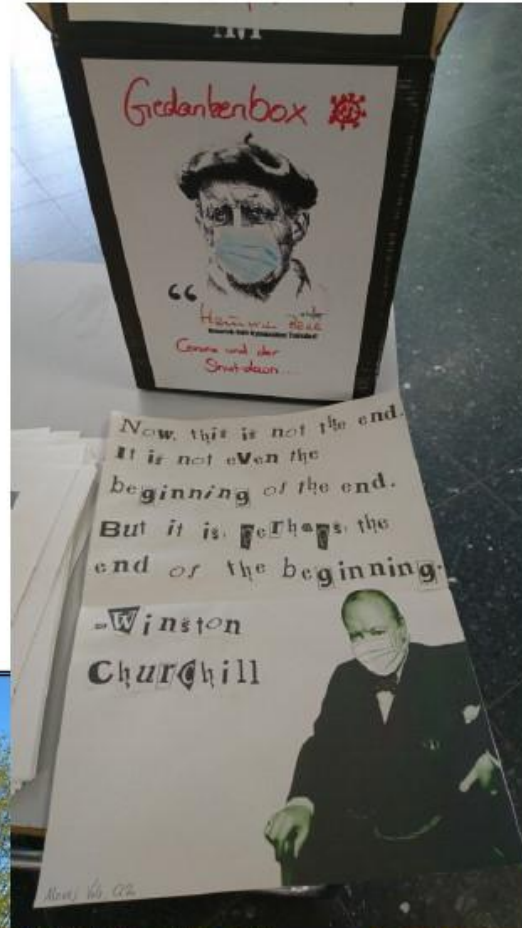 Gedankenbox
“
Heinrich Zille
Corona und der
Shut-down...
Now, this is not the end.
It is not even the
beginning of the end.
But it is, perhaps, the
end of the beginning.
-Winston
Churchill
Q2